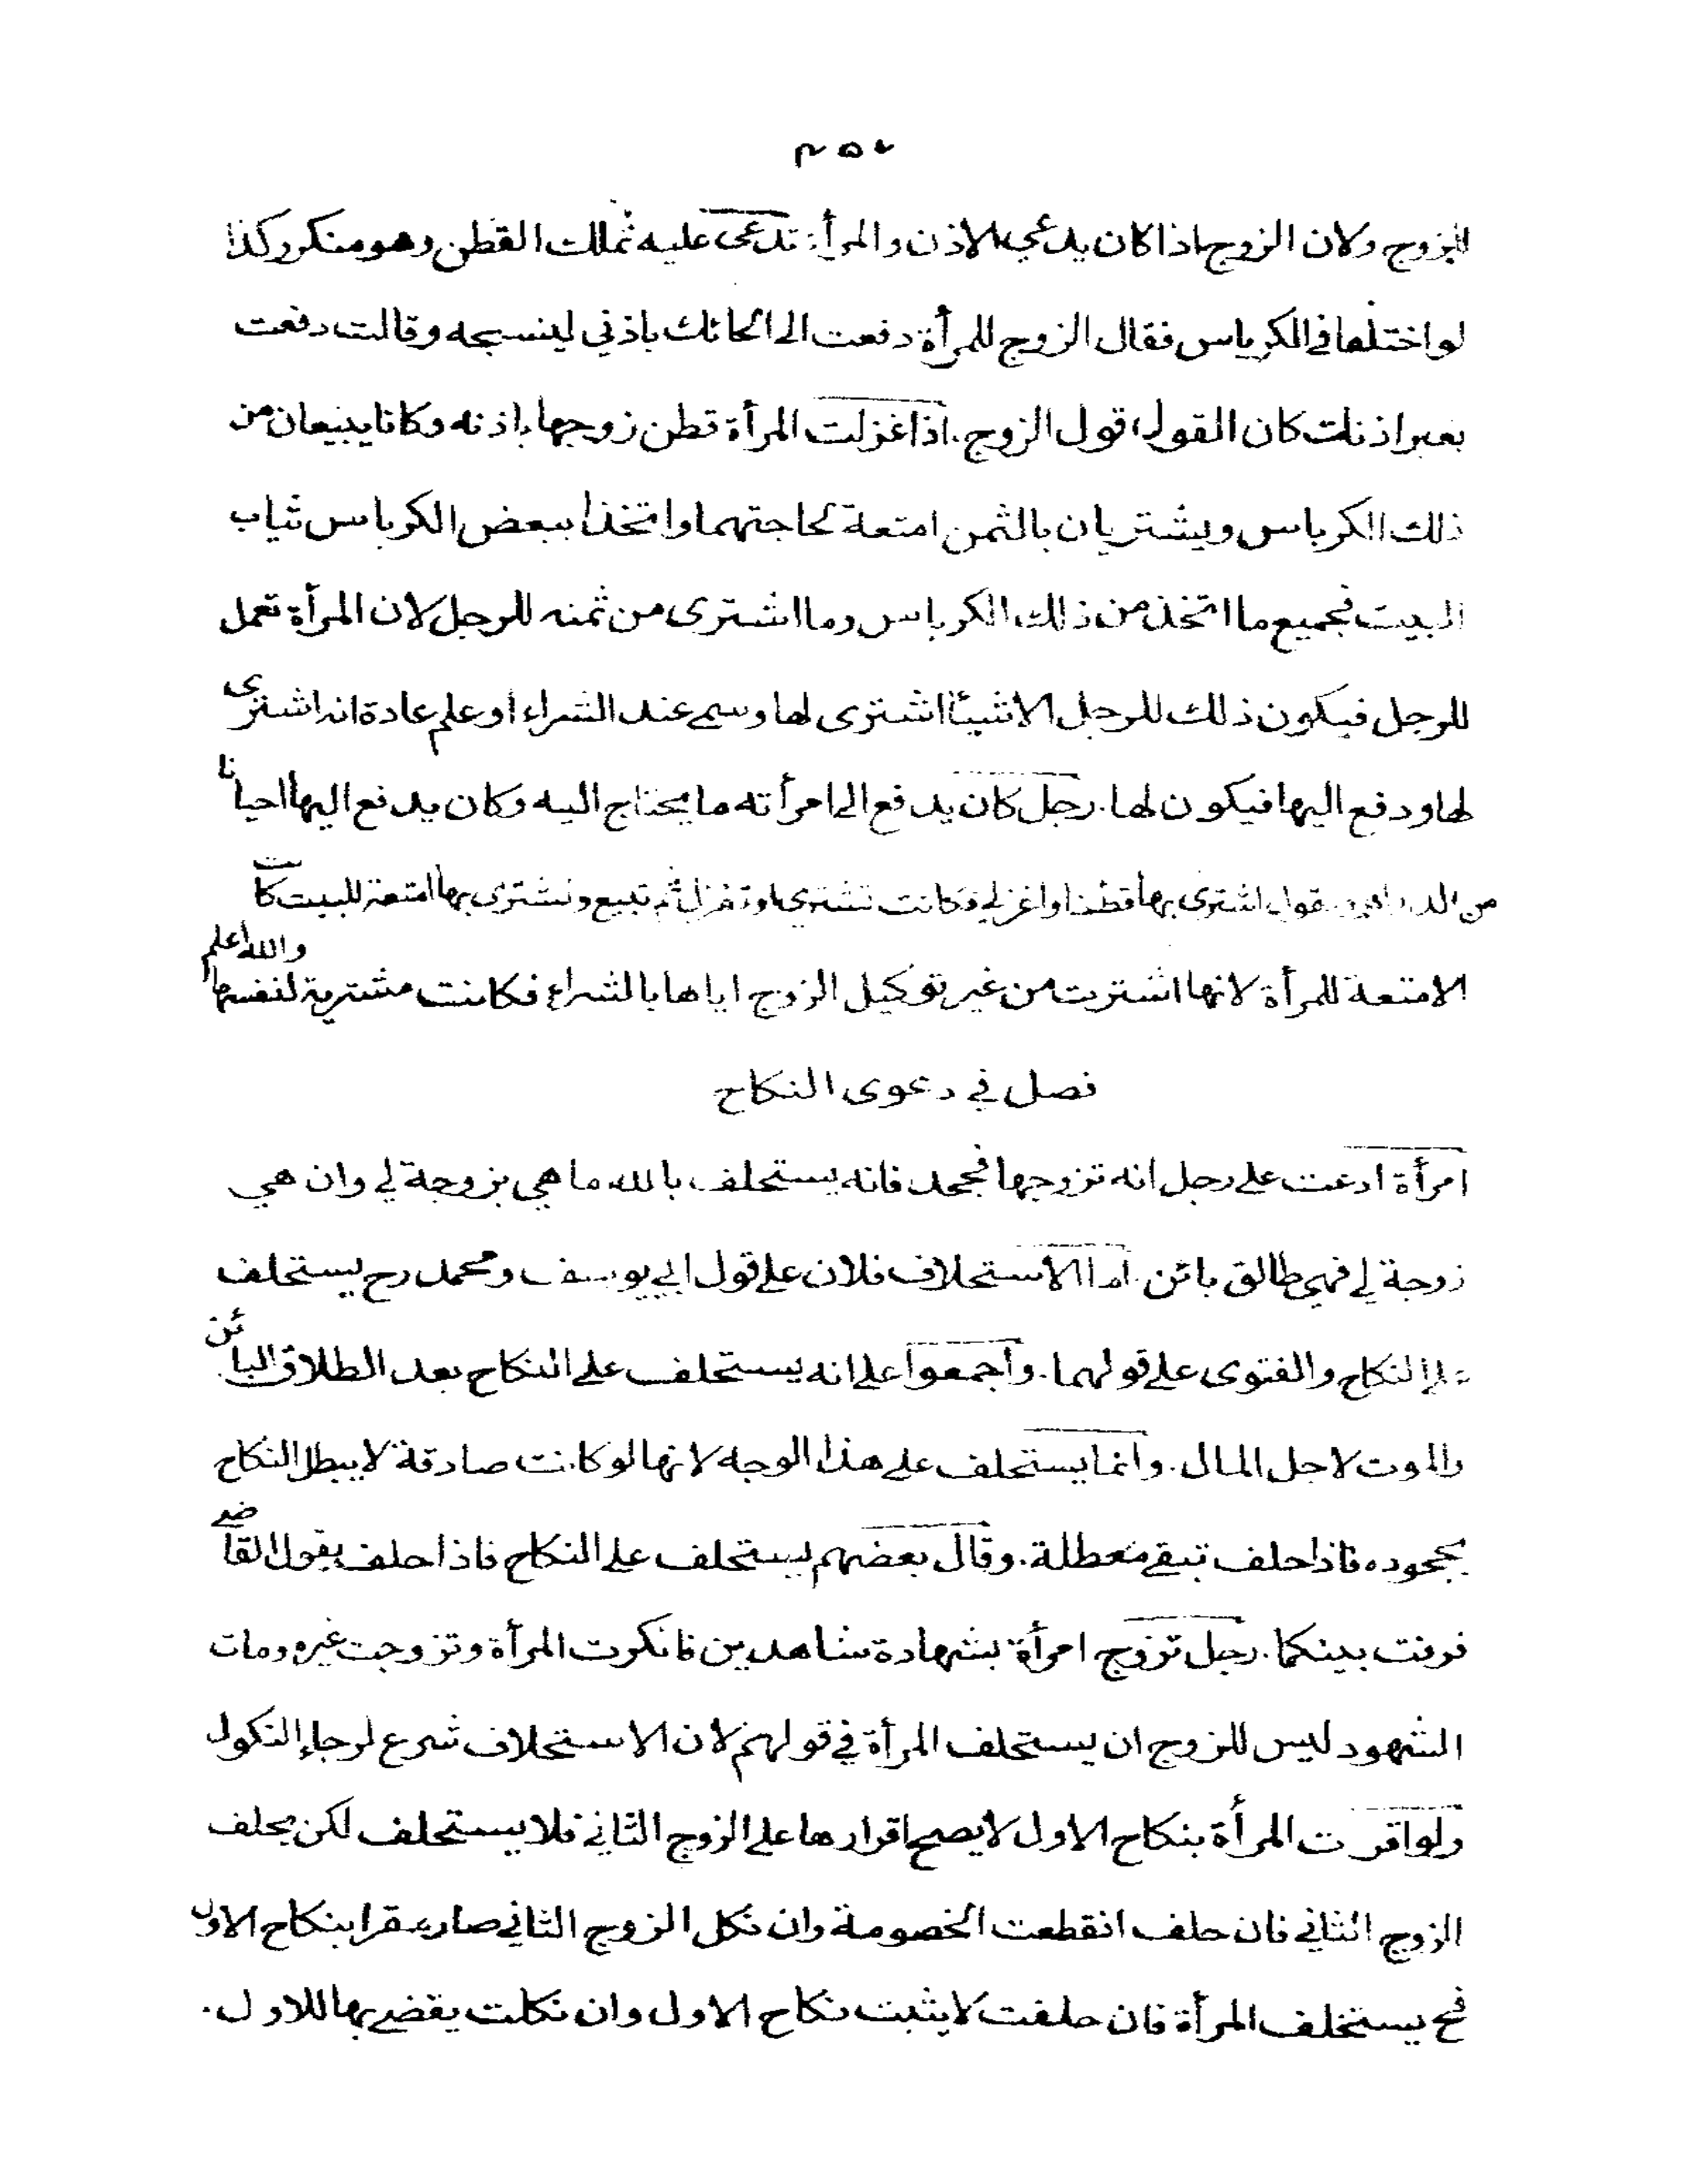 للزوج ولان الزوج اذا كان يدعي الاذن والمرأة تدعى عليه تملك القطن وهو منكر وكذا
لو اختلفا في الكرباس فقال الزوج للمرأة دفعت الى الحائك باذني لينسجه وقالت دفعت
بغير اذنك كان القول قول الزوج. اذا غزلت المرأة قطن زوجها باذنه وكانا يبيعان من
ذلك الكرباس ويشتريان بالثمن امتعة لحاجتهما واتخذا ببعض الكرباس ثياب
البيت فجميع ما اتخذ من ذلك الكرباس وما اشترى من ثمنه للرجل لان المرأة تعمل
للرجل فيكون ذلك للرجل الا شيئا اشترى لها وسمى عند الشراء او علم عادة انه اشترى
لها ودفع اليها فيكون لها. رجل كان يدفع الى امرأته ما يحتاج اليه وكان يدفع اليها احيانا
من الدراهم ويقول اشترى بها قطنا واغزلي فكانت تشتري وتغزل ثم تبيع وتشترى بها امتعة للبيت كانت
الامتعة للمرأة لانها اشترت من غير توكيل الزوج اياها بالشراء فكانت مشترية لنفسها والله اعلم
فصل في دعوى النكاح
امرأة ادعت على رجل انه تزوجها فجحد فانه يستحلف بالله ما هي بزوجة لي وان هي
زوجة لي فهي طالق بائن. اما الاستحلاف فلان على قول ابي يوسف ومحمد رح يستحلف
على النكاح والفتوى على قولهما. واجمعوا على انه يستحلف على النكاح بعد الطلاق البائن
والموت لاجل المال. وانما يستحلف على هذا الوجه لانها لو كانت صادقة لا يبطل النكاح
بجحوده فاذا حلف تبقى معطلة. وقال بعضهم يستحلف على النكاح فاذا حلف يقول القاضي
فرقت بينكما. رجل تزوج امرأة بشهادة شاهدين فانكرت المرأة وتزوجت غيره ومات
الشهود ليس للزوج ان يستحلف المرأة في قولهم لان الاستحلاف شرع لرجاء النكول
ولو اقرت المرأة بنكاح الاول لا يصح اقرارها على الزوج الثاني فلا يستحلف لكن يحلف
الزوج الثاني فان حلف انقطعت الخصومة وان نكل الزوج الثاني صار مقرا بنكاح الاول
فح يستحلف المرأة فان حلفت لا يثبت نكاح الاول وان نكلت يقضى بها للاول.